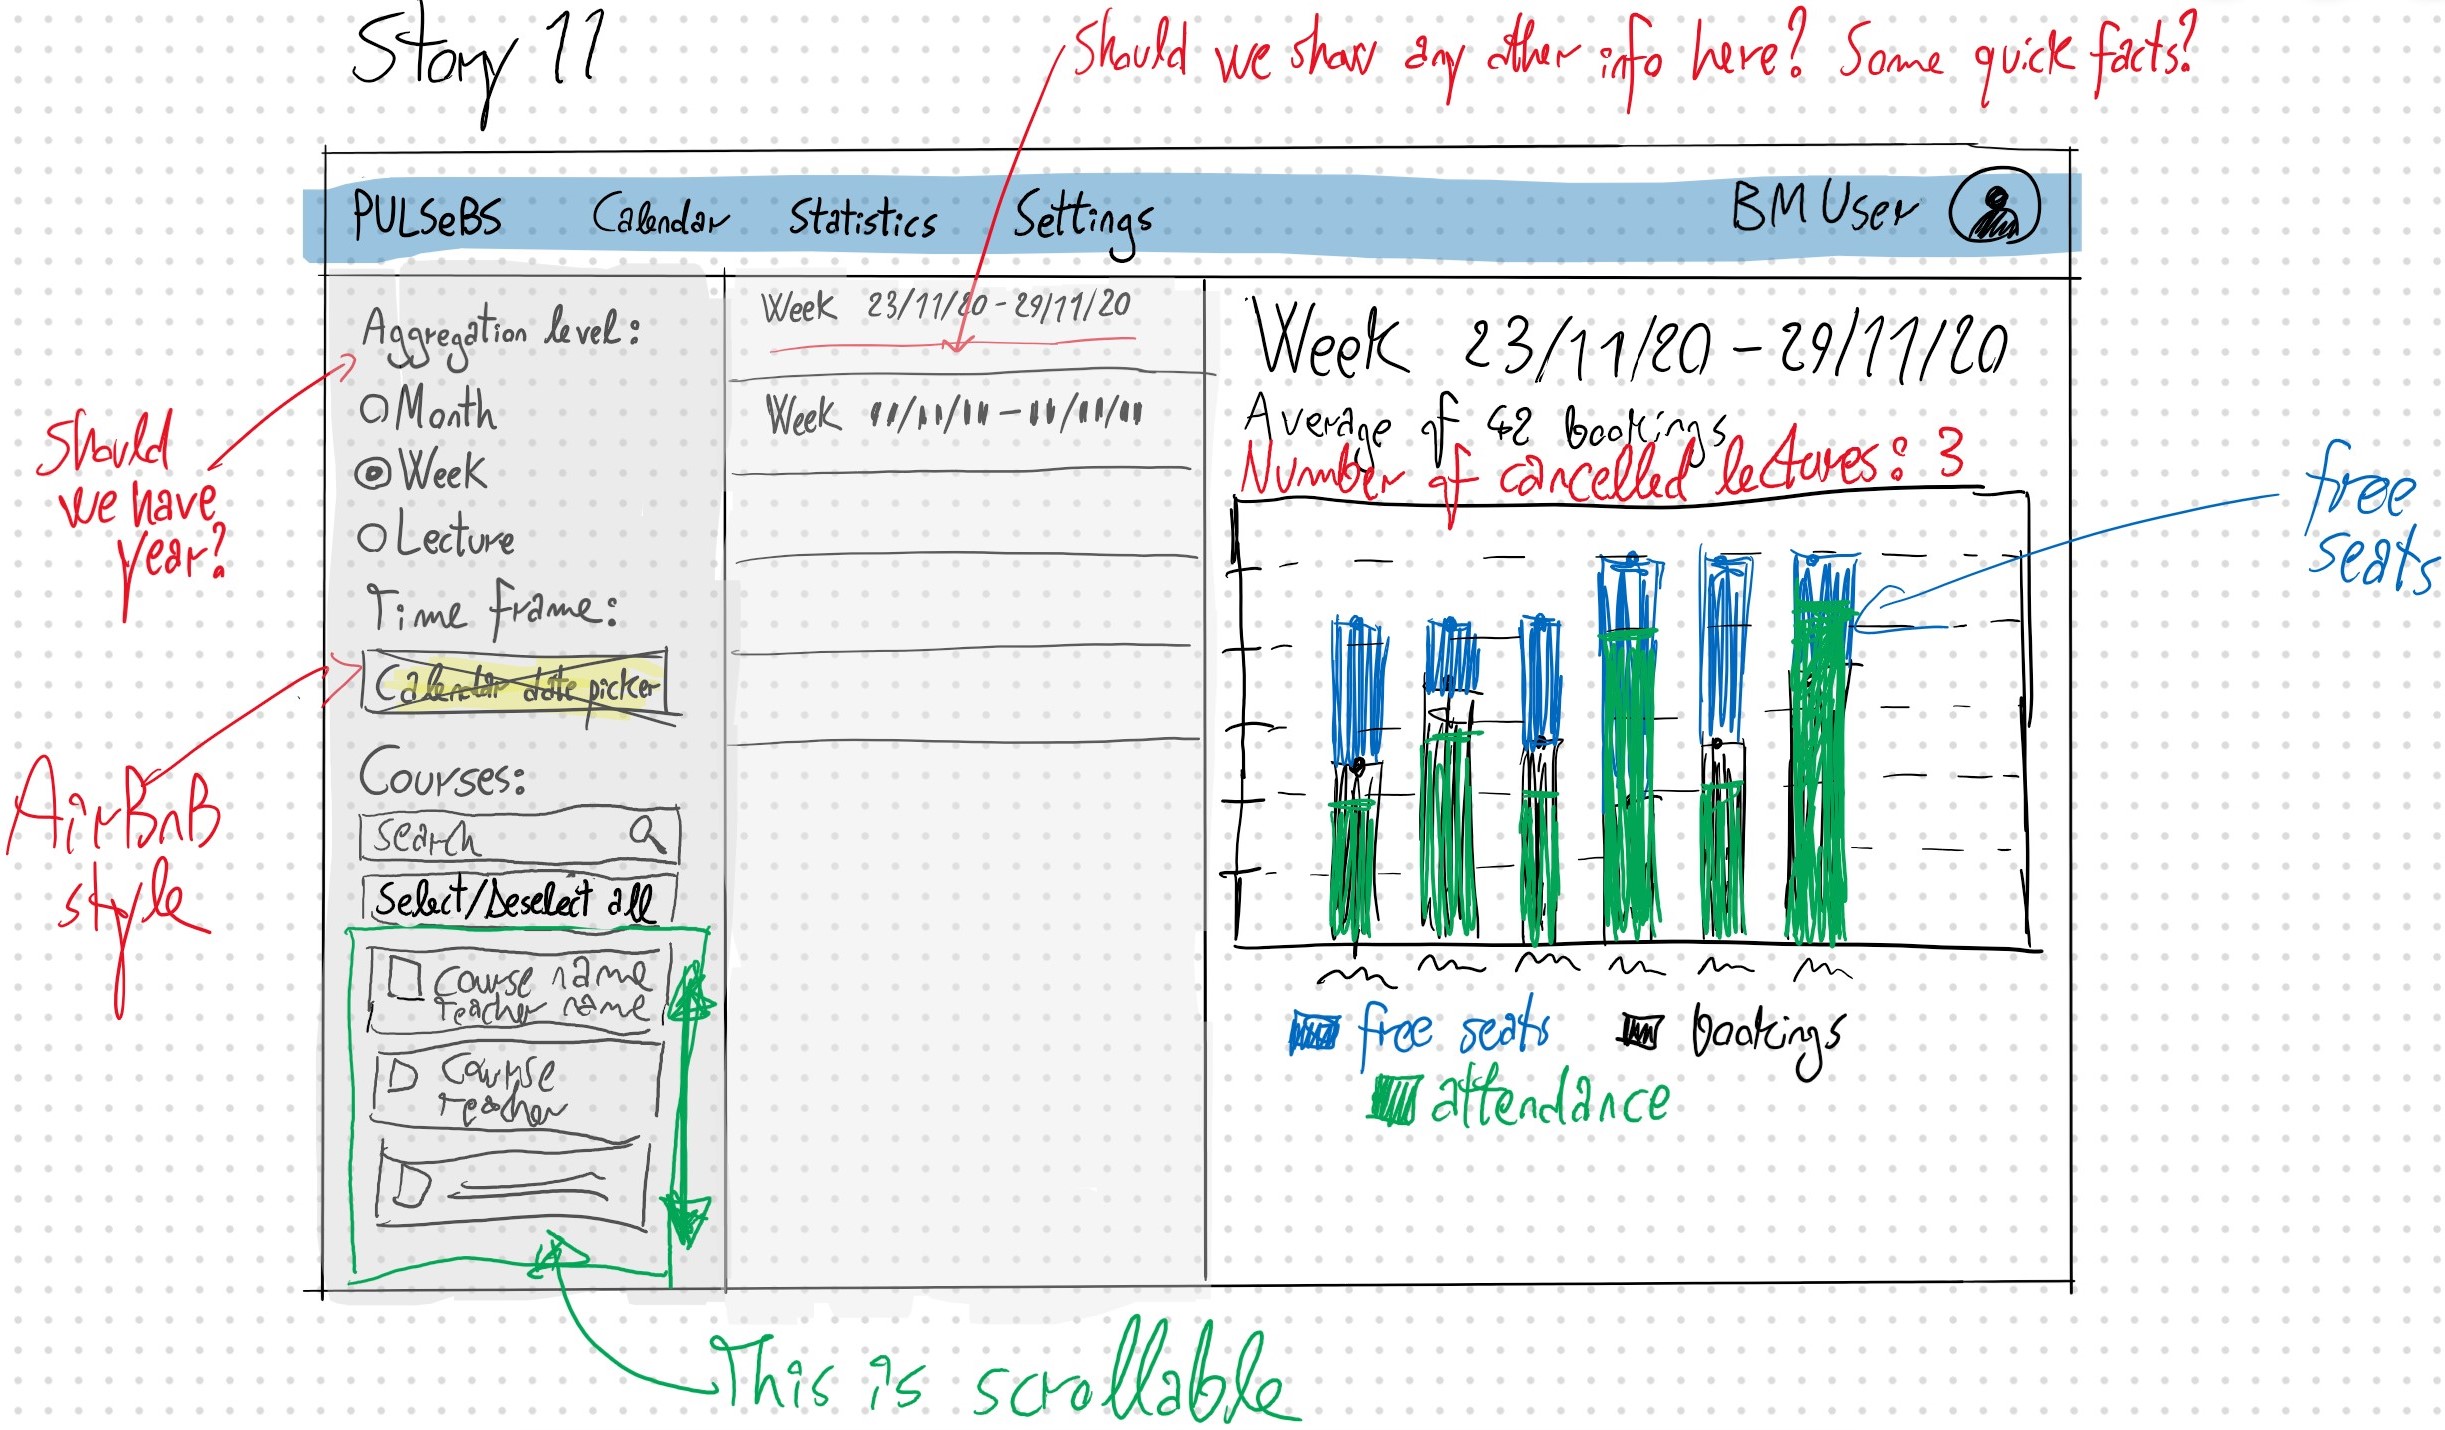 Story 11
Should we show any other info here? Some quick facts?
PULSeBS Calendar Statistics Settings BM User
Aggregation level:
Month
Week
Lecture
Should
we have
year?
Time frame:
Calendar date picker
AirBnB
style
Courses:
Search
Select/Deselect all
Course name
Teacher name
Course
Teacher
This is scrollable
Week 23/11/20 - 29/11/20
Week
Week 23/11/20 - 29/11/20
Average of 42 bookings
Number of cancelled lectures: 3
free
seats
free seats bookings
attendance